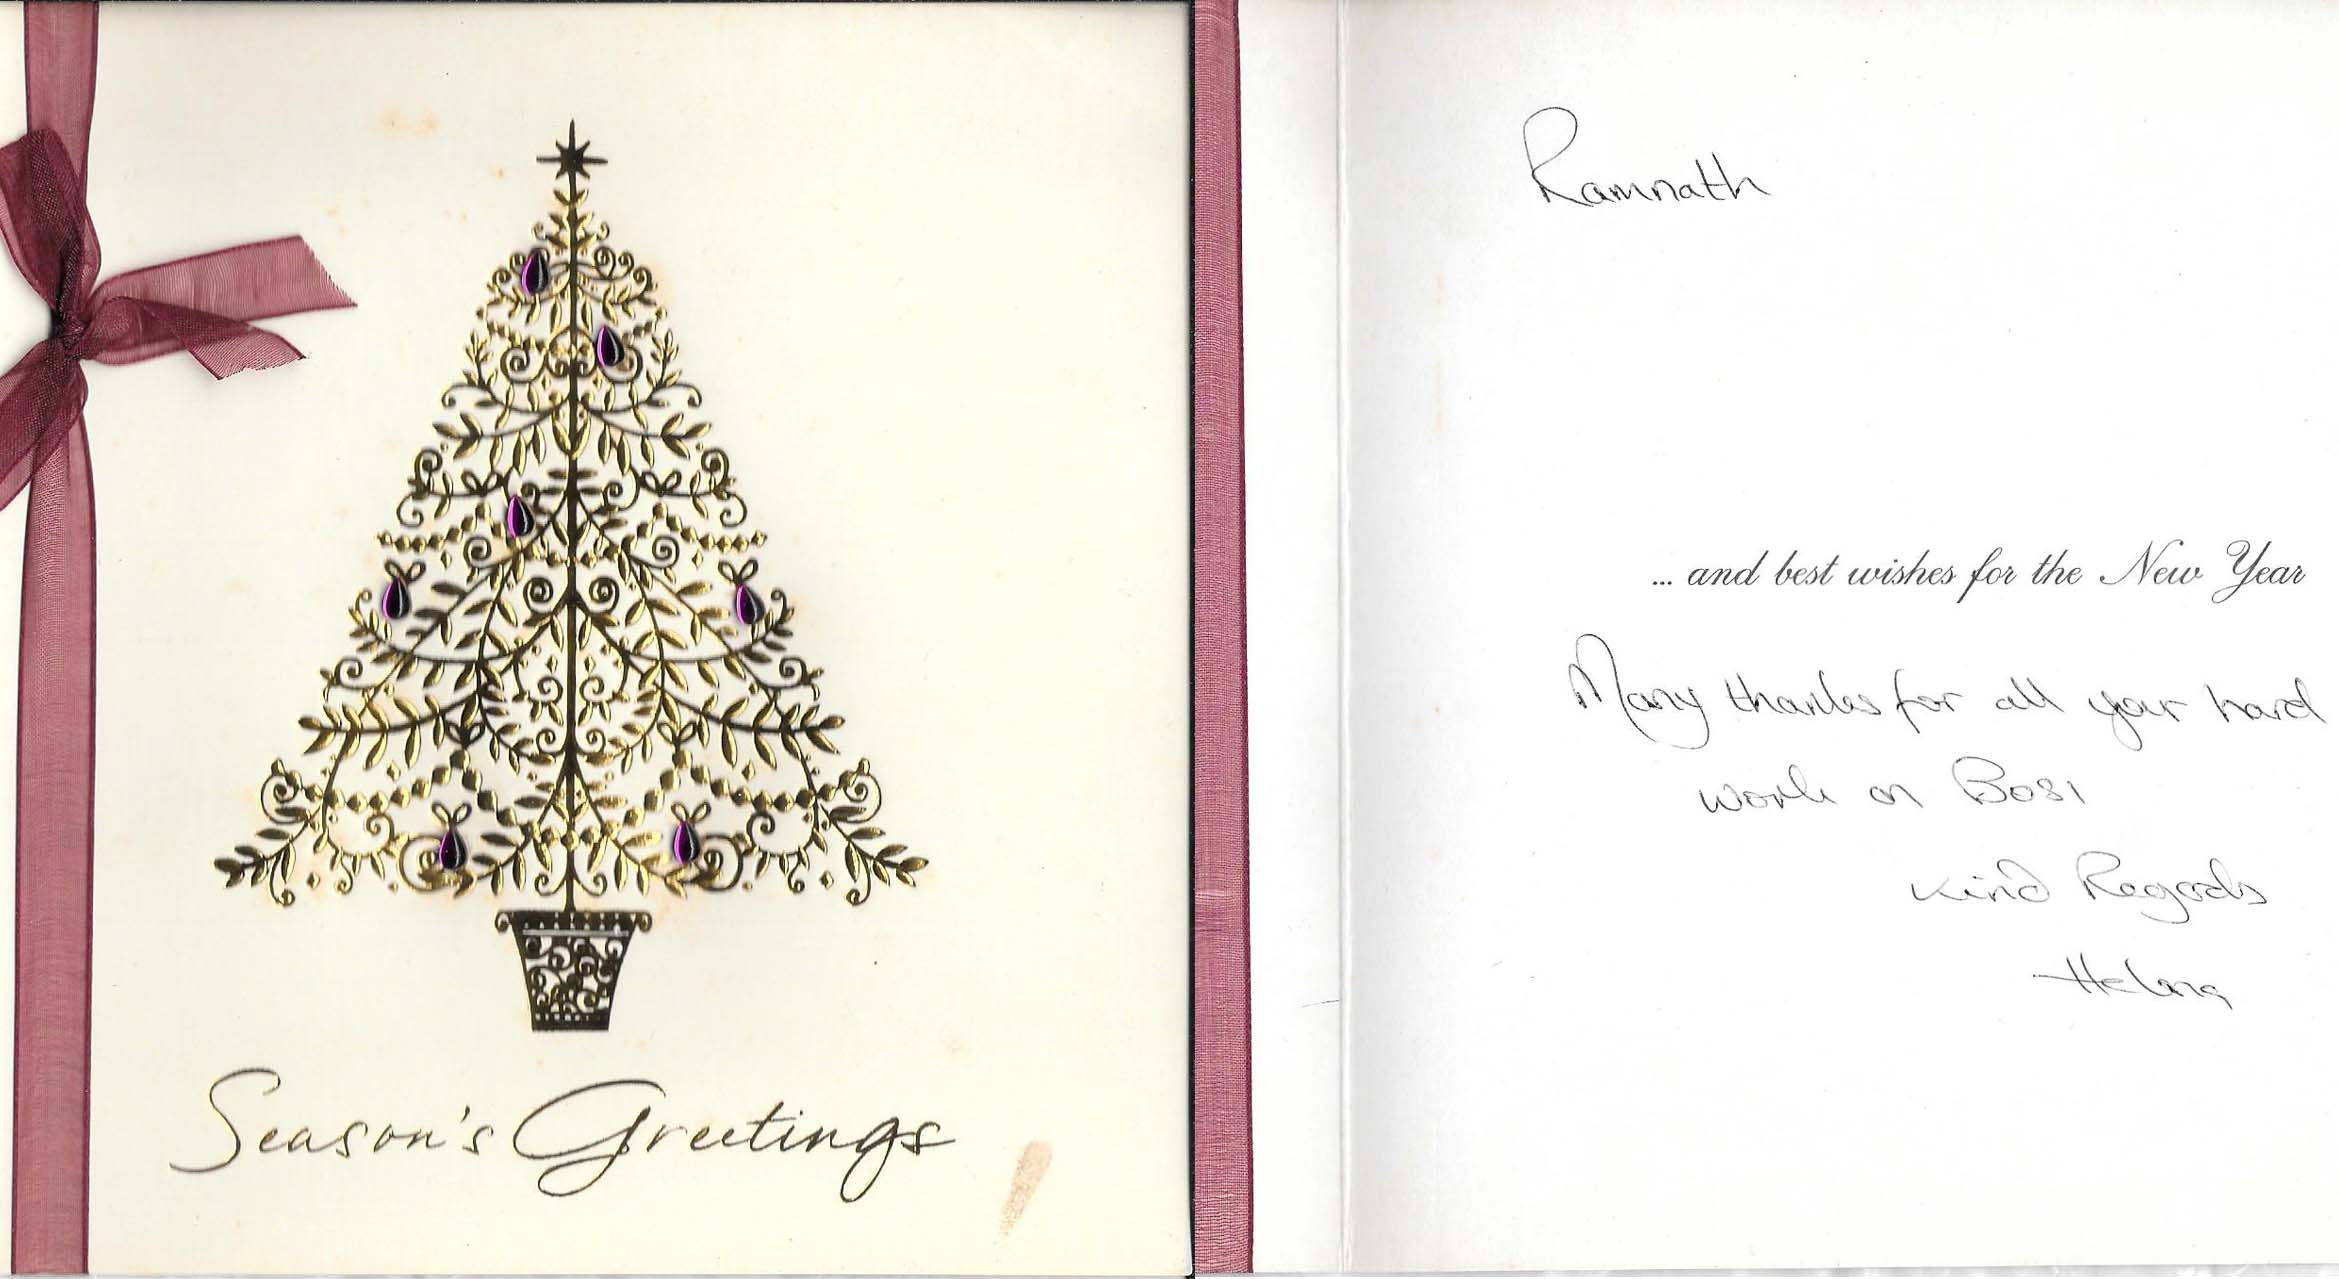 Season's Greetings
Ramnath
... and best wishes for the New Year
Many thanks for all your hard
work on
Kind Regards